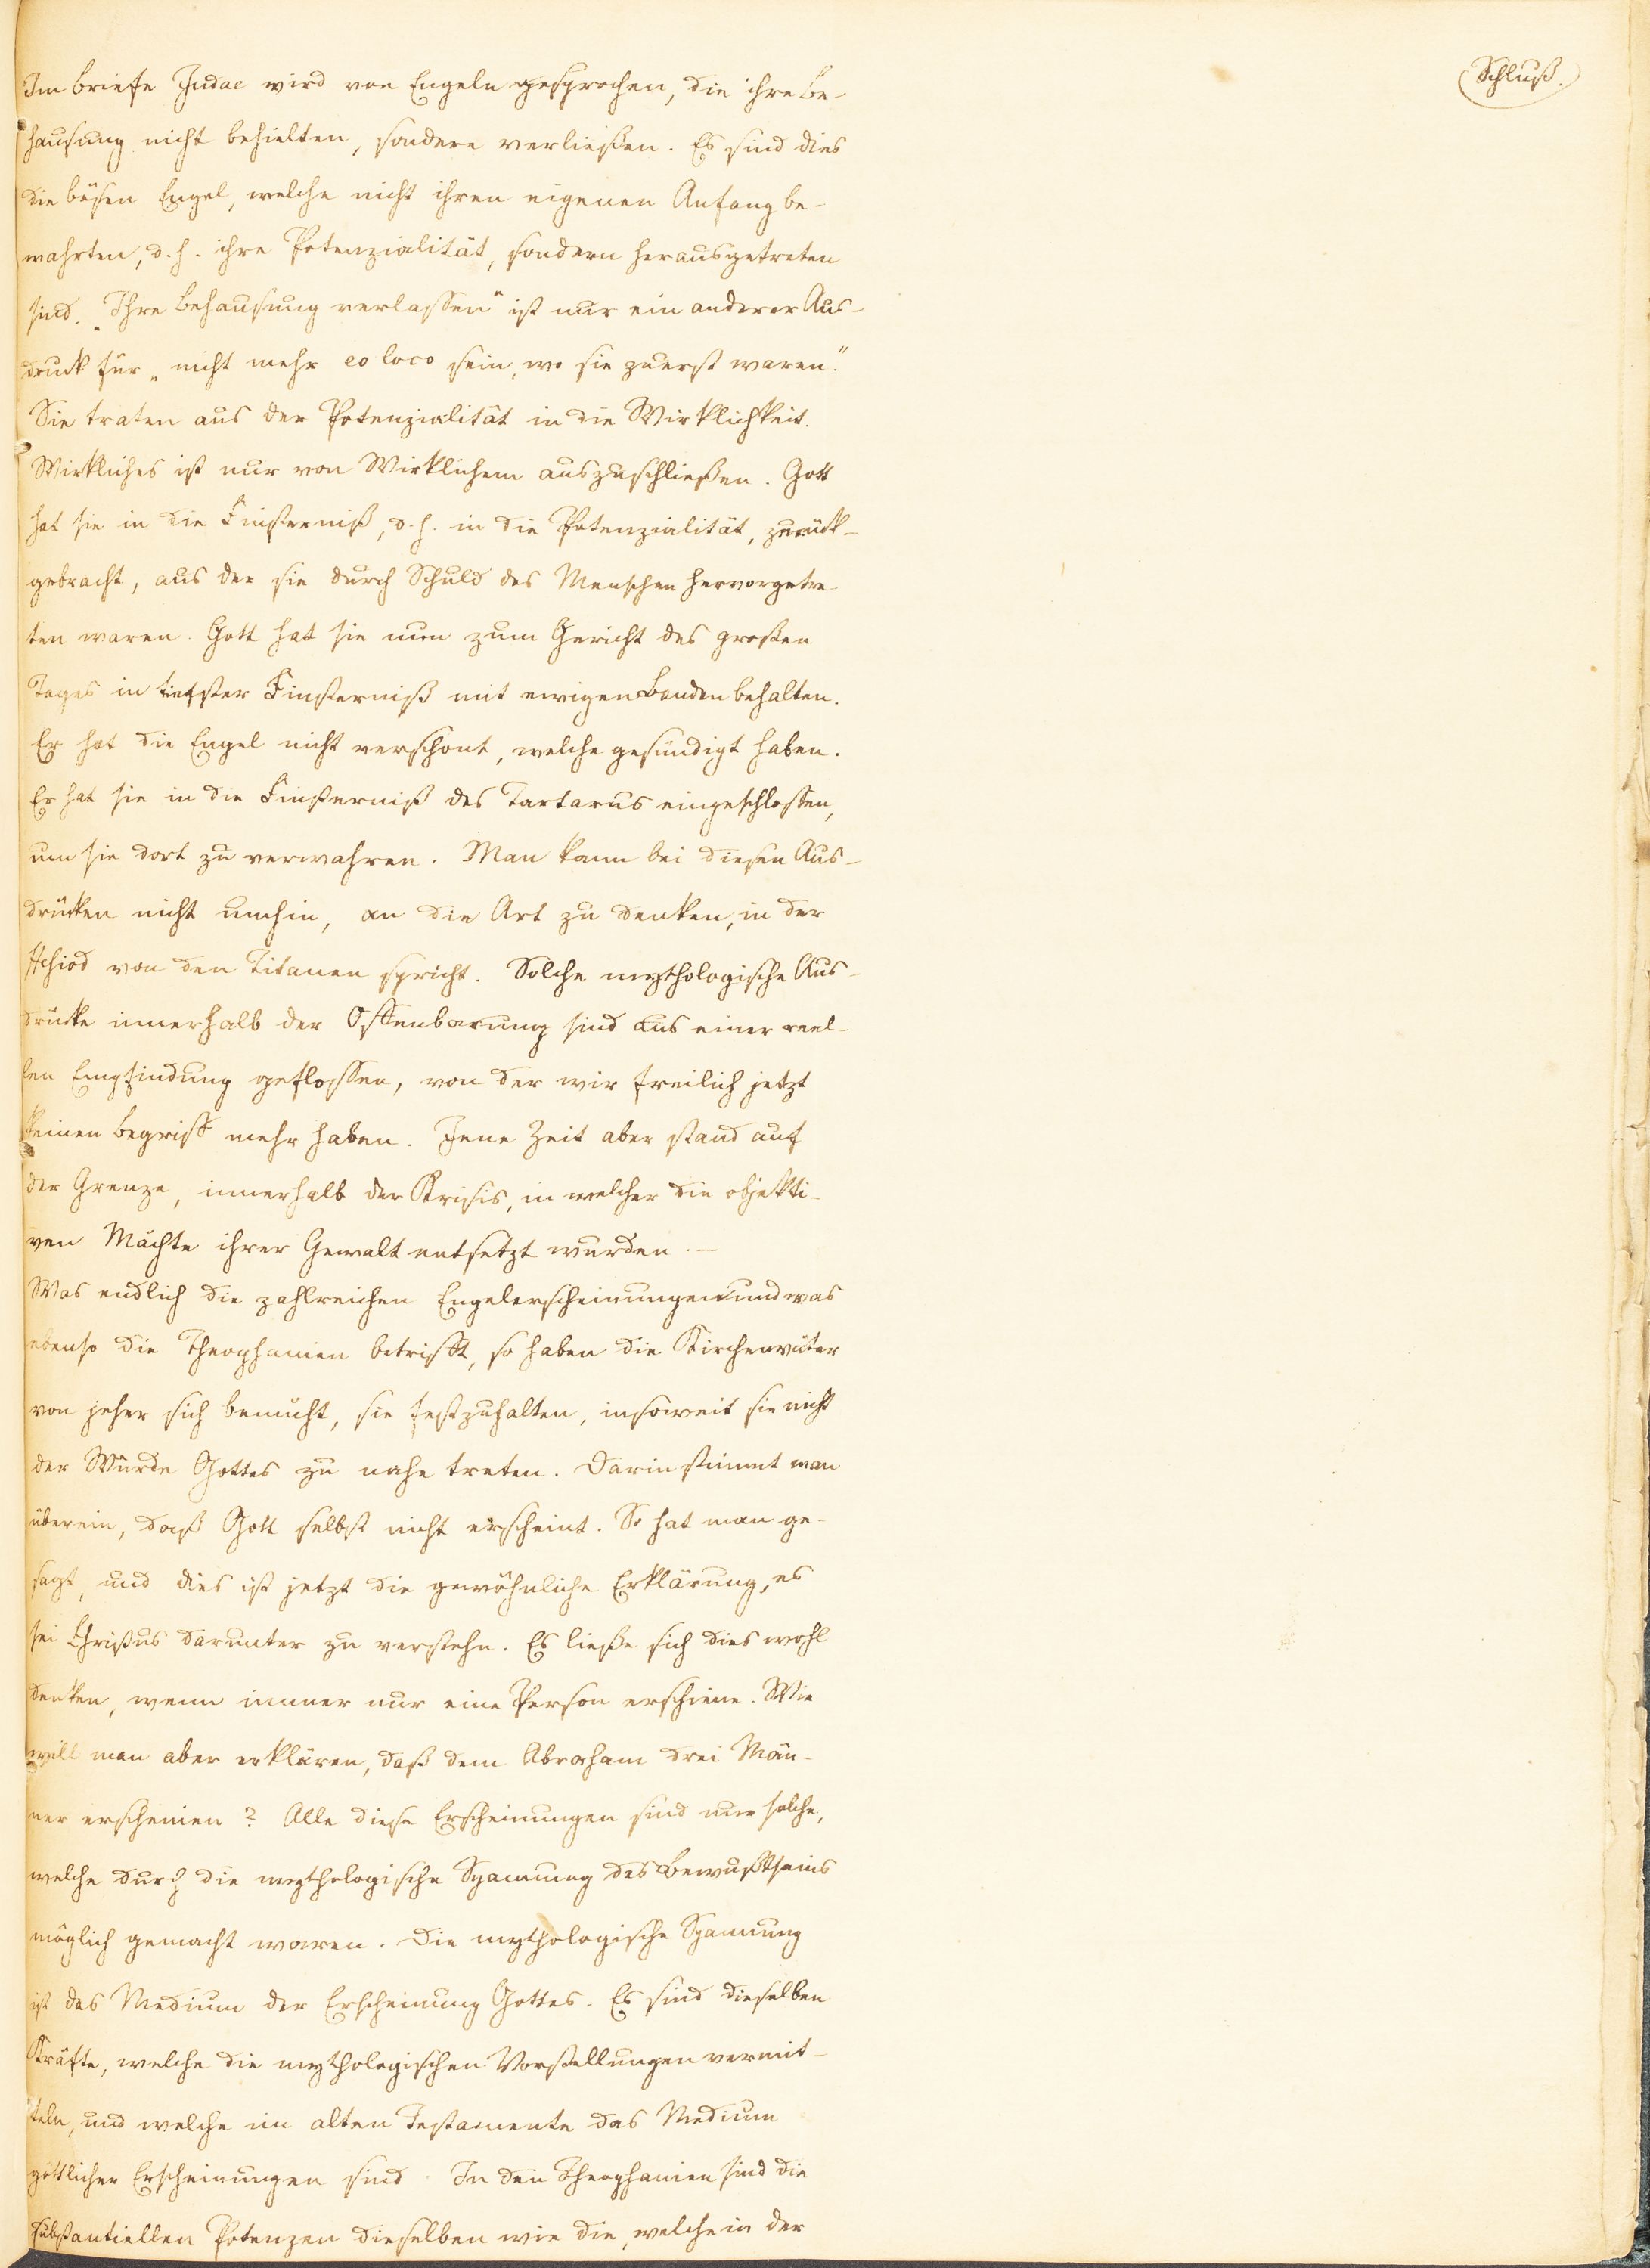 Schluß.
Im Briefe Judae wird von Engeln gesprochen, die ihre Be-
hausung nicht behielten, sondern verließen. Es sind dies
die bösen Engel, welche nicht ihren eigenen Anfang be-
wahrten, d. h. ihre Potenzialität, sondern herausgetreten
sind. „Ihre Behausung verlassen“ ist nur ein anderer Aus-
druck für „nicht mehr eo loco sein, wo sie zuerst waren.“
Sie traten aus der Potenzialität in die Wirklichkeit.
Wirkliches ist nur von Wirklichem auszuschließen. Gott
hat sie in die Finsterniß, d. h. in die Potenzialität, zurück-
gebracht, aus der sie durch Schuld des Menschen hervorgetre-
ten waren. Gott hat sie nun zum Gericht des großen
Tages in tiefster Finsterniß mit ewigen Banden behalten.
Er hat die Engel nicht verschont, welche gesündigt haben.
Er hat sie in die Finsterniß des Tartarus eingeschlossen,
um sie dort zu verwahren. Man kann bei diesen Aus-
drücken nicht umhin, an die Art zu denken, in der
Hesiod von den Titanen spricht. Solche mythologische Aus-
drücke innerhalb der Offenbarung sind aus einer reel-
len Empfindung geflossen, von der wir freilich jetzt
keinen Begriff mehr haben. Jene Zeit aber stand auf
der Grenze, innerhalb der Krisis, in welcher die objekti-
ven Mächte ihrer Gewalt entsetzt wurden. —
Was endlich die zahlreichen Engelerscheinungen und was
ebenso die Theophanien betrifft, so haben die Kirchenväter
von jeher sich bemüht, sie festzuhalten, insoweit sie nicht
der Würde Gottes zu nahe treten. Darin stimmt man
überein, daß Gott selbst nicht erscheint. So hat man ge-
sagt, und dies ist jetzt die gewöhnliche Erklärung, es
sei Christus darunter zu verstehn. Es ließe sich dies wohl
denken, wenn immer nur eine Person erschiene. Wie
will man aber erklären, daß dem Abraham drei Män-
ner erscheinen? Alle diese Erscheinungen sind nur solche,
welche durch die mythologische Spannung des Bewußtseins
möglich gemacht waren. Die mythologische Spannung
ist das Medium der Erscheinung Gottes. Es sind dieselben
Kräfte, welche die mythologischen Vorstellungen vermit-
teln, und welche im alten Testamente das Medium
göttlicher Erscheinungen sind. In den Theophanien sind die
substantiellen Potenzen dieselben wie die, welche in der